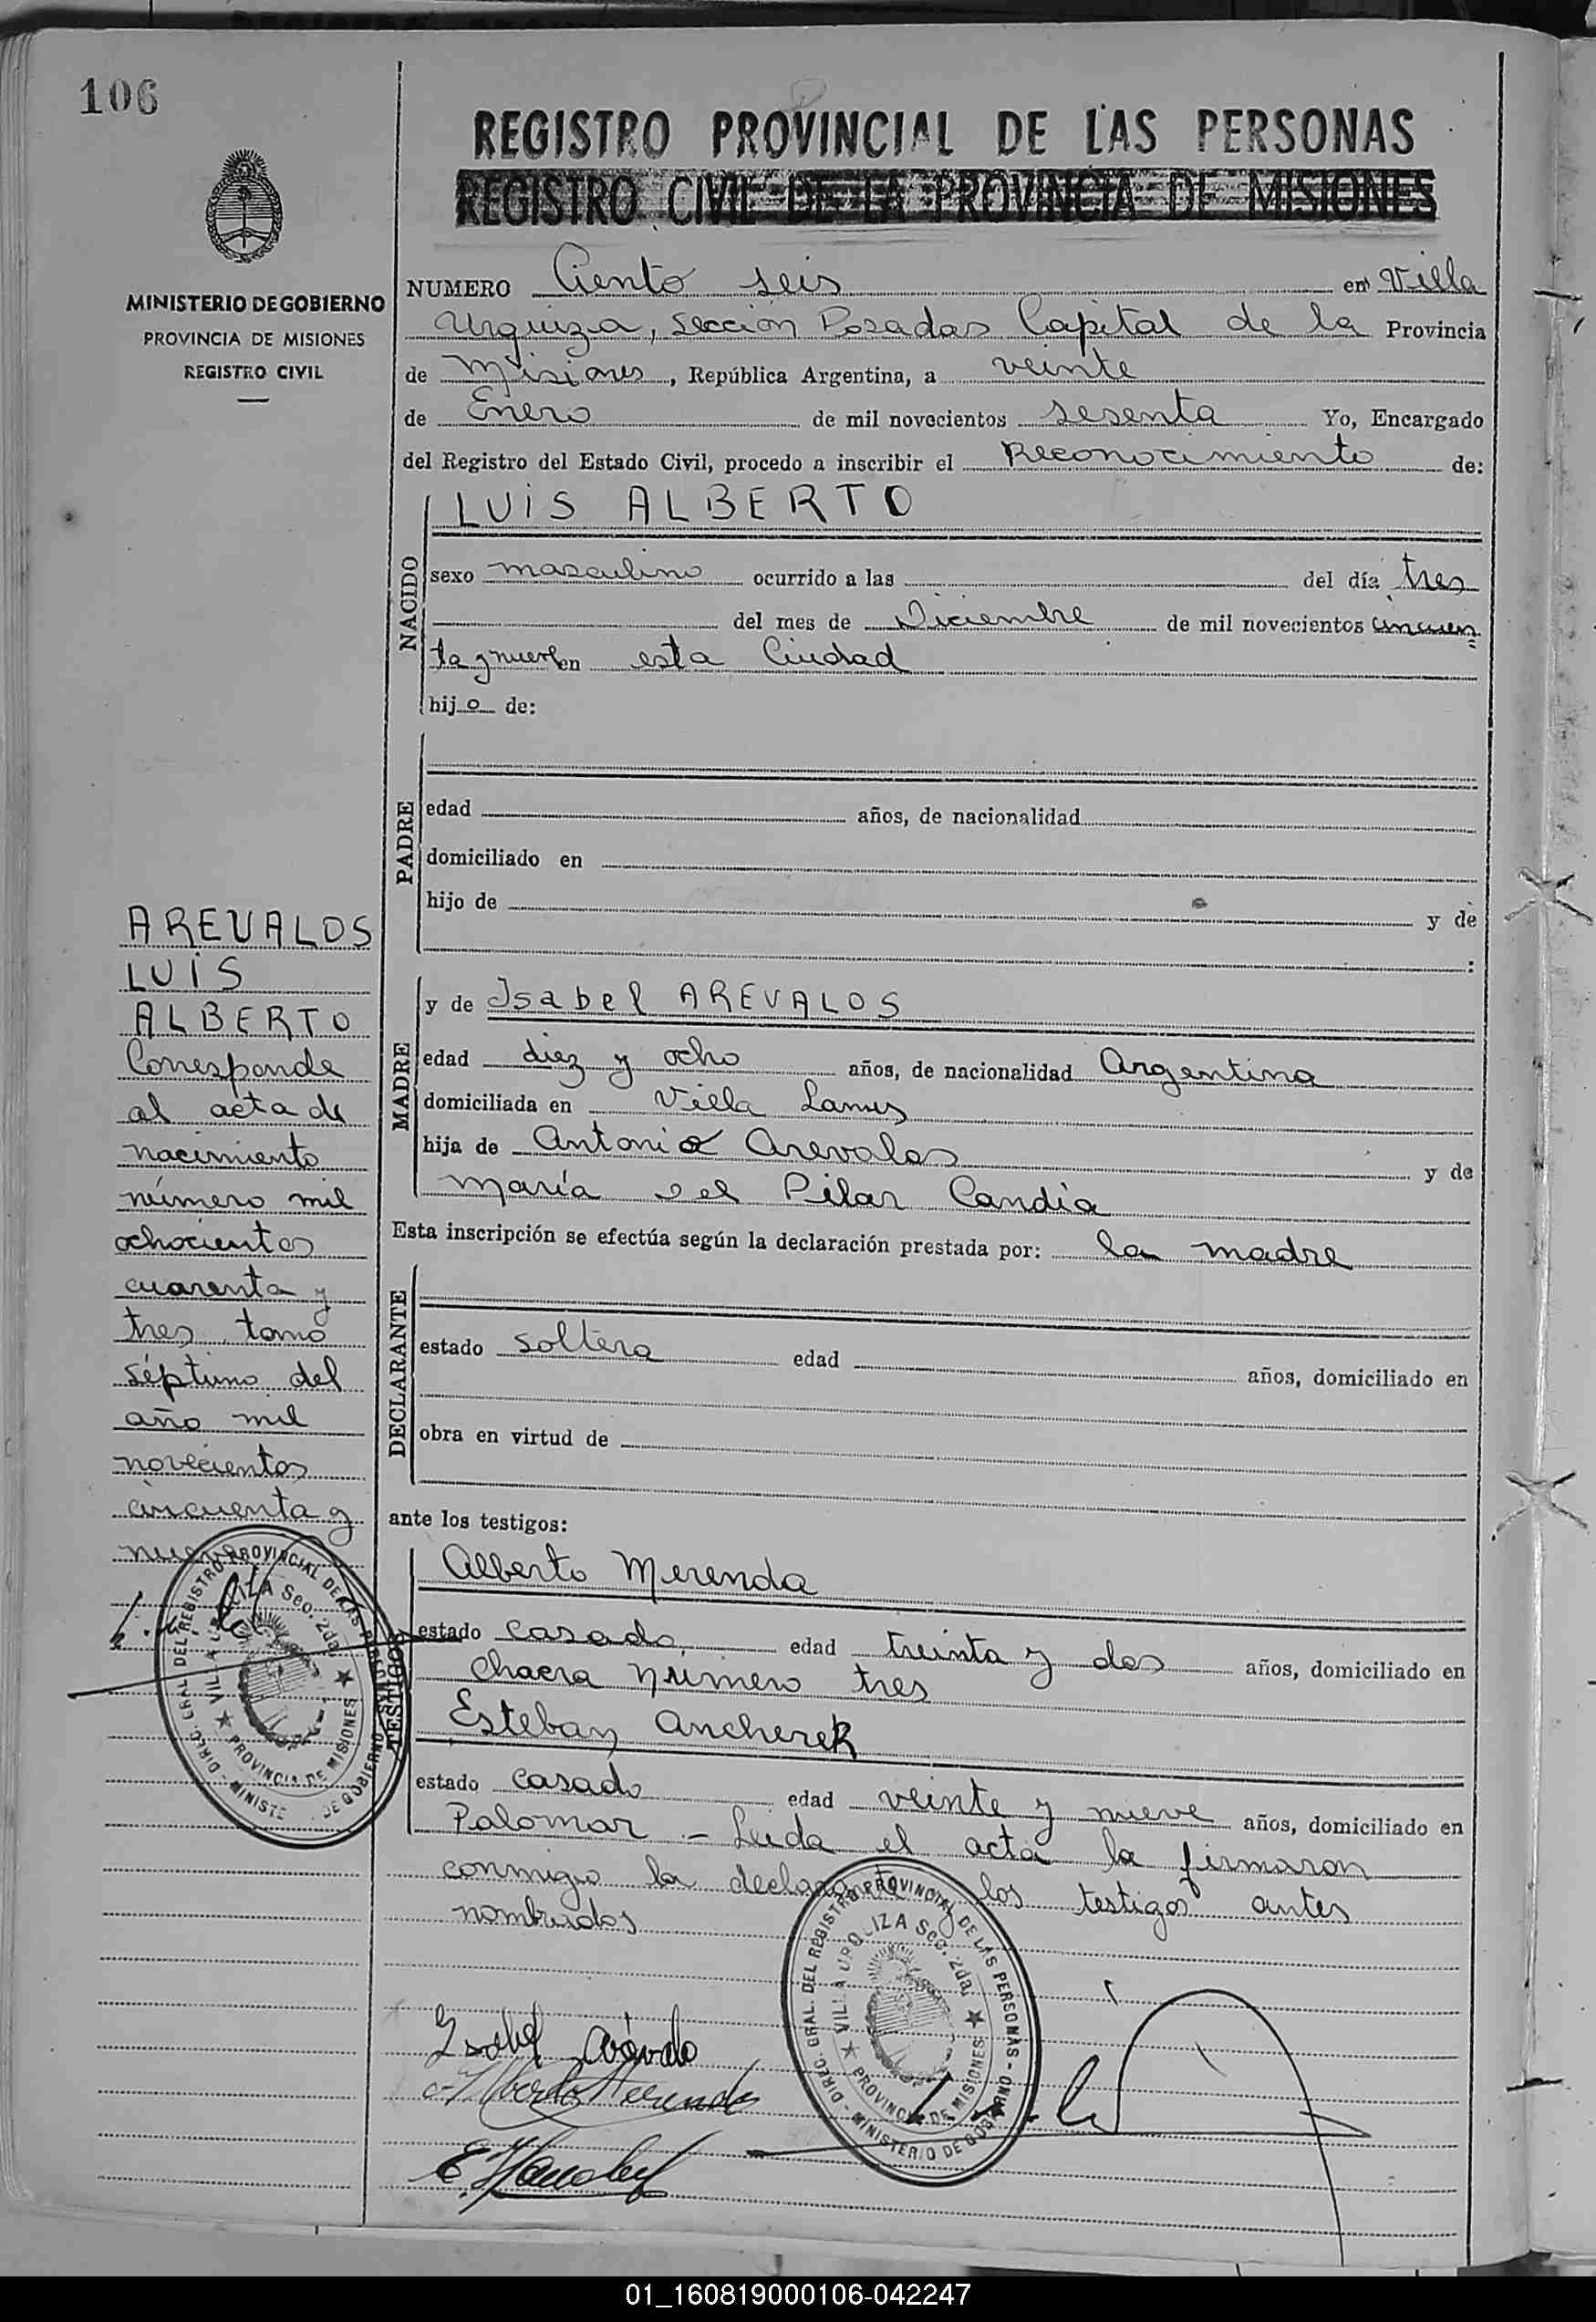 106
REGISTRO PROVINCIAL DE LAS PERSONAS
REGISTRO CIVIL DE LA PROVINCIA DE MISIONES
MINISTERIO DE GOBIERNO
PROVINCIA DE MISIONES
REGISTRO CIVIL
NUMERO Ciento seis en Villa
Urquiza, Sección Posadas Capital de la Provincia
de Misiones, República Argentina, a veinte
de Enero de mil novecientos sesenta Yo, Encargado
del Registro del Estado Civil, procedo a inscribir el Reconocimiento de:
NACIDO
LUIS ALBERTO
sexo masculino ocurrido a las del día tres
del mes de Diciembre de mil novecientos cincuen
ta y nueve en esta Ciudad
hijo de:
PADRE
edad años, de nacionalidad
domiciliado en
hijo de y de
:
MADRE
y de Isabel AREVALOS
edad diez y ocho años, de nacionalidad Argentina
domiciliada en Villa Lanus
hija de Antonio Arevalos y de
María del Pilar Candia
Esta inscripción se efectúa según la declaración prestada por: la madre
DECLARANTE
estado soltera edad años, domiciliado en
obra en virtud de
ante los testigos:
TESTIGOS
Alberto Merenda
estado casado edad treinta y dos años, domiciliado en
Chacra número tres
Esteban Ancherek
estado casado edad veinte y nueve años, domiciliado en
Palomar - Leida el acta la firmaron
conmigo la declarante y los testigos antes
nombrados
AREVALOS
LUIS
ALBERTO
Corresponde
al acta de
nacimiento
número mil
ochocientos
cuarenta y
tres tomo
séptimo del
año mil
novecientos
cincuenta y
nueve
DIREC. GRAL. DEL REGISTRO PROVINCIAL DE LAS PERSONAS - MINISTERIO DE GOBIERNO
VILLA URQUIZA Sec. 2da.
PROVINCIA DE MISIONES
DIREC. GRAL. DEL REGISTRO PROVINCIAL DE LAS PERSONAS - MINISTERIO DE GOBIERNO
VILLA URQUIZA Sec. 2da.
PROVINCIA DE MISIONES
Isabel Arévalo
Alberto Merenda
01_160819000106-042247